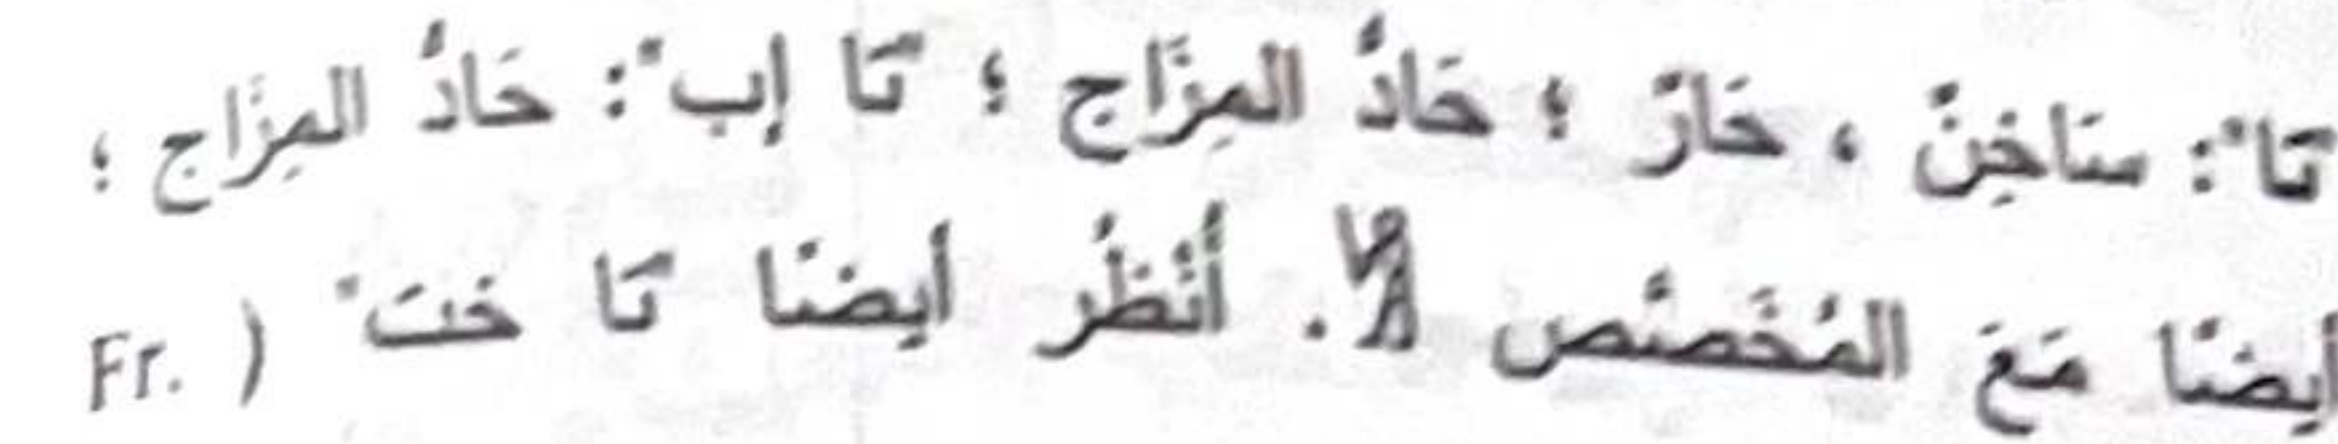 تَا": سَاخِنٌ ، حَارٌ ؛ حَادُّ المِزَاج ؛ "تَا إِب": حَادُّ المِزَاج ؛
أيضًا مَعَ المُخَصَّص . أُنْظُر أيضًا "تَا خت" ( Fr.